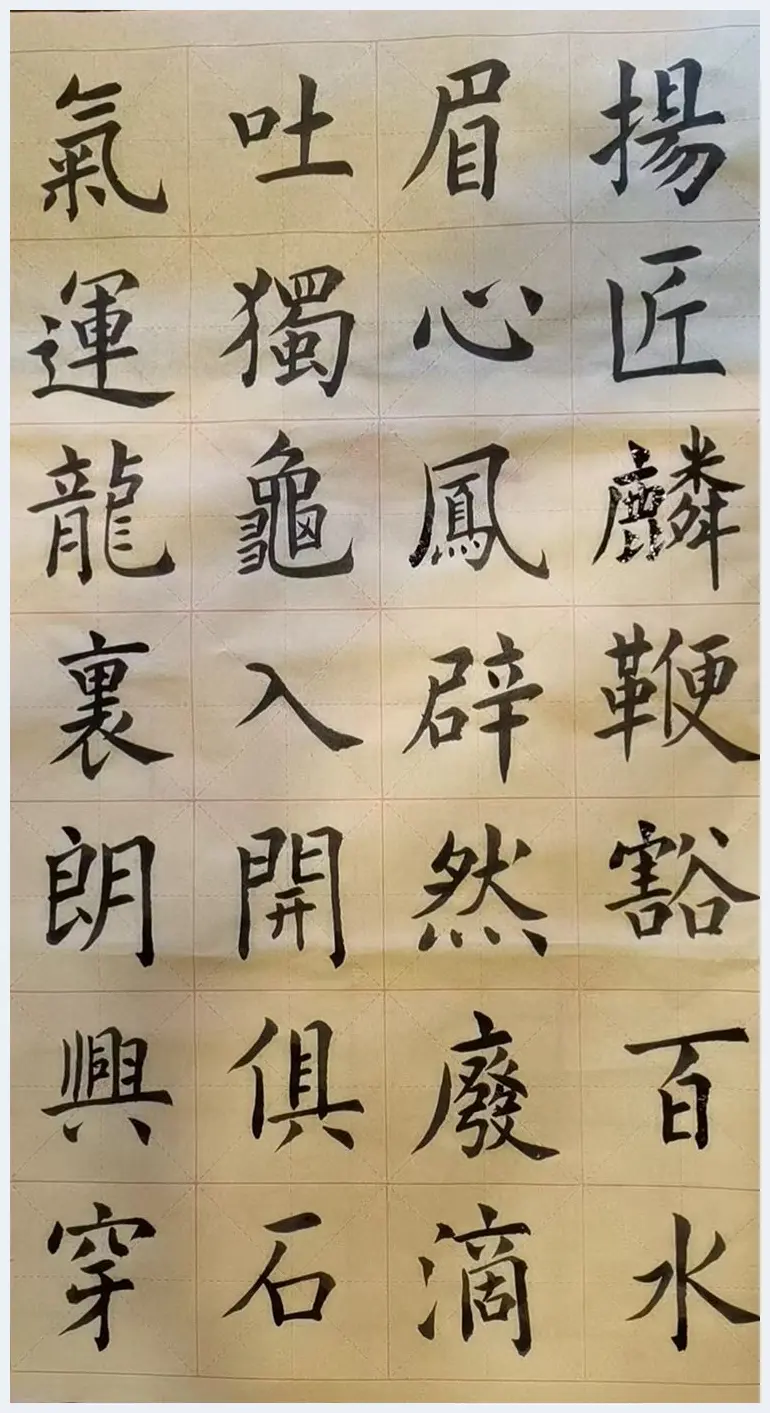 揚眉吐氣
匠心獨運
麟鳳龜龍
鞭辟入裏
豁然開朗
百廢俱興
水滴石穿